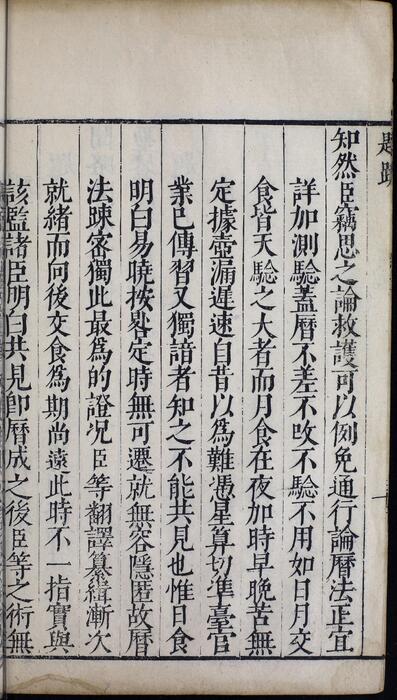 題疏
知然臣竊思之論救護可以例免通行論曆法正宜
詳加測驗蓋曆不差不改不驗不用如日月交
食皆天驗之大者而月食在夜加時早晚苦無
定據壺漏遲速自昔以為難憑星算切準臺官
業已傳習又獨諳者知之不能共見也惟日食
明白易曉按晷定時無可遷就無容隱匿故曆
法疎密獨此最爲的證况臣等翻譯纂緝漸次
就緒而向後交食爲期尚遠此時不一指實與
該監諸臣明白共見即曆成之後臣等之術無